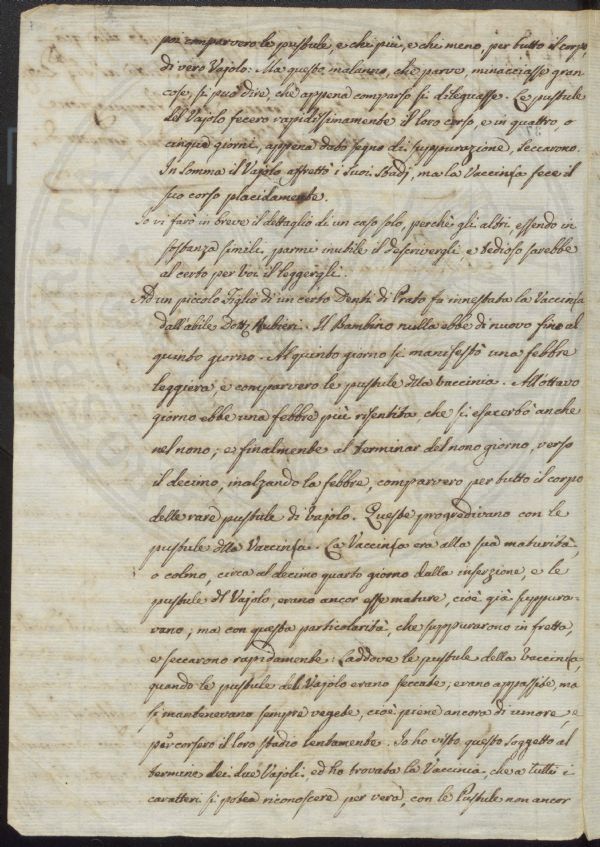 poi comparvero le pustule, e chi più, e chi meno, per tutto il corpo
di vero Vajolo: Ma questo malanno, che parve, minacciasse gran
cose, si può dire, che appena comparso si dileguasse. Le pustule
del Vajolo fecero rapidissimamente il loro corso, e in quattro, o
cinque giorni, appena dato segno di suppurazione, seccarono.
In somma il Vajolo affrettò i suoi stadj, ma la Vaccinia fece il
suo corso placidamente.
Io vi farò in breve il dettaglio di un caso solo, perchè gli altri, essendo in
sostanza simili, parmi inutile il descrivergli e tedioso sarebbe
al certo per voi il leggergli.
Ad un piccolo Figlio di un certo Denti di Prato fu innestata la Vaccinia
dall'abile Dott. Rubieri. Il Bambino nulla ebbe di nuovo fino al
quinto giorno. Al quinto giorno si manifestò una febbre
leggiera, e comparvero le pustule dlla vaccinia. All'ottavo
giorno ebbe una febbre più risentita che si esacerbò anche
nel nono; e finalmente al terminar del nono giorno, verso
il decimo, inalzando la febbre, comparvero per tutto il corpo
delle rare pustule di Vajolo. Queste progredivano con le
pustule dlla Vaccinia. La Vaccinia era alla sua maturità,
o colmo, circa al decimo quarto giorno dalla inserzione, e le
pustule dl Vajolo, erano ancor esse mature, cioè già suppura-
vano; ma con questa particolarità, che suppurarono in fretta,
e seccarono rapidamente: Laddove le pustule della Vaccinia,
quando le pustule del Vajolo erano seccate; erano appassite, ma
si mantenevano sempre vegete, cioè piene ancora di umore, e
percorsero il loro stadio lentamente. Io ho visto questo soggetto al
termine dei due Vajoli, ed ho trovata la Vaccinia, che a tutti i
caratteri si potea riconoscere per vera, con le Pustule non ancor